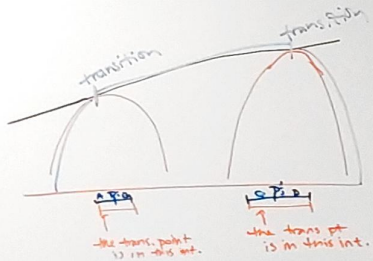 transition
transition
A Pi B
C Pj D
the trans. point
is in this int.
the trans pt
is in this int.